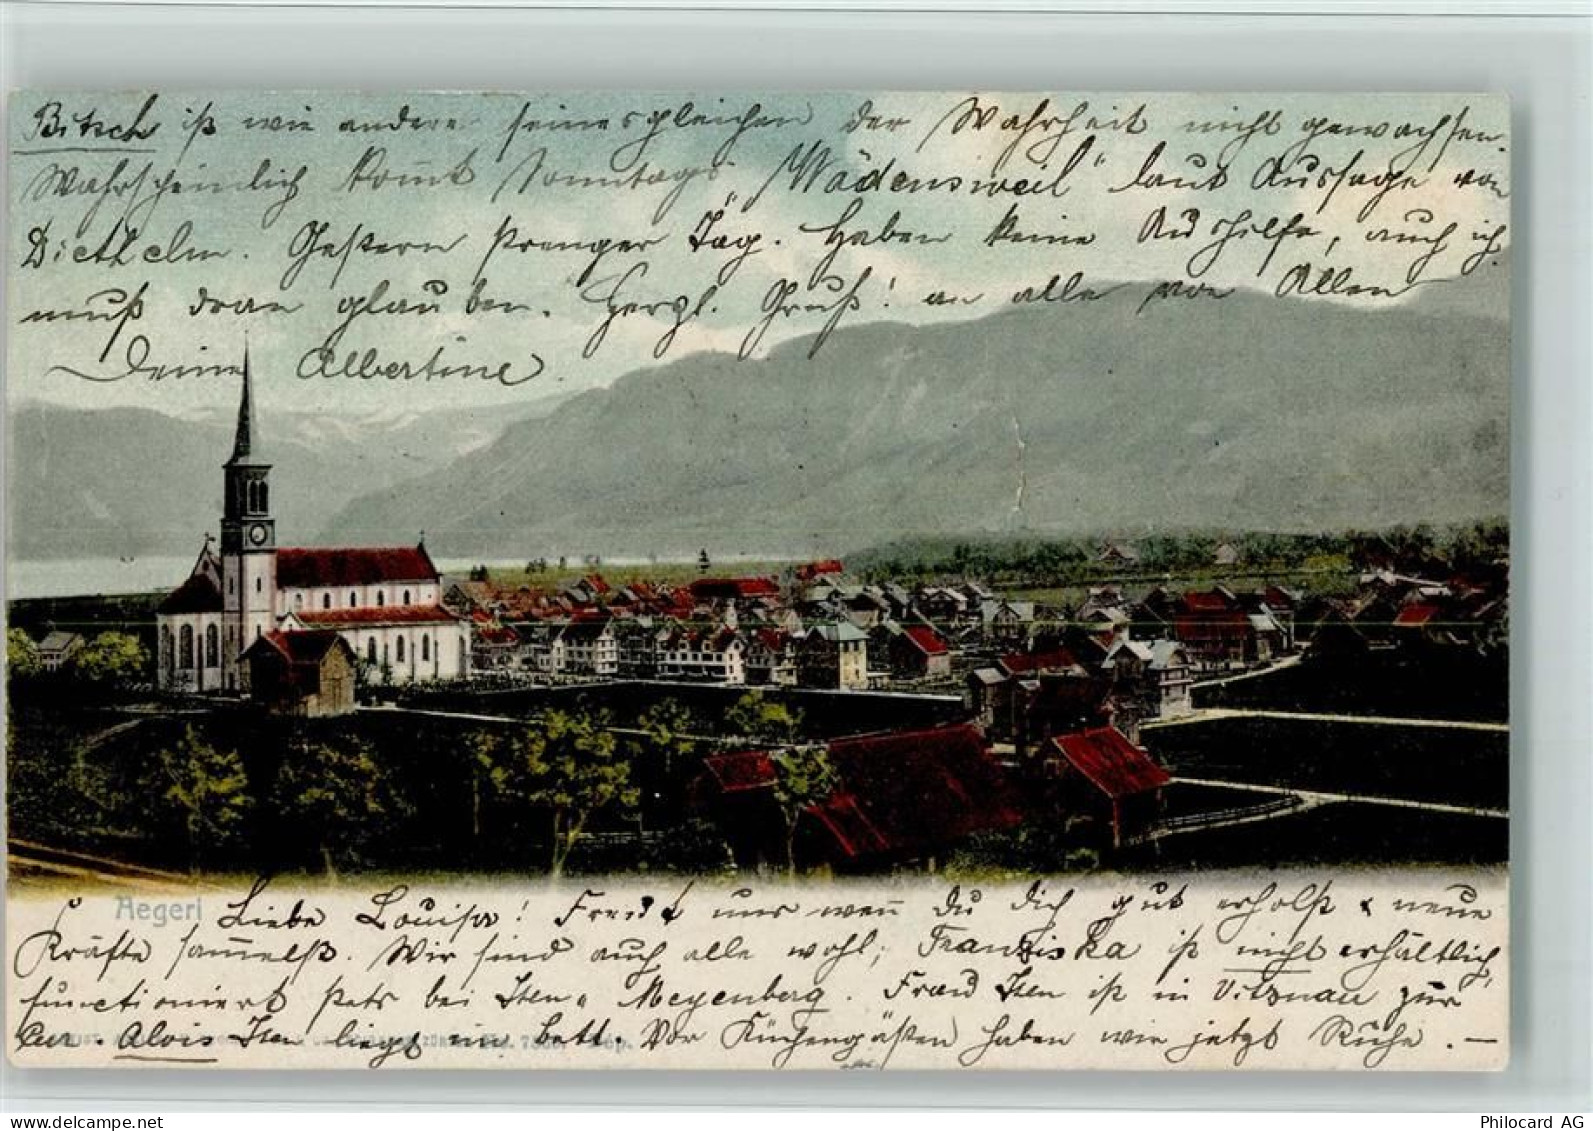 Bitsch ist wie andere seinesgleichen der Wahrheit nicht gewachsen.
Wahrscheinlich kom̄t Sonntags „Wädensweil" laut Aussage von
Diethelm. Gestern strenger Tag. Haben keine Aushilfe, auch ich
muß dran glauben. Herzl. Gruß! an alle von Allen
Deine Albertine.
Aegeri
Liebe Louisa! Freut uns wen̄ Du Dich gut erholst & neue
Kräfte sam̄elst. Wir sind auch alle wohl; Franziska ist nicht erhältlich,
functioniert stets bei Iten-Meyenberg. Frau Iten ist in Vitznau zur
Cur. Alois Iten liegt im Bett. Vor Küchengästen haben wir jetzt Ruhe. —
Philocard AG
delcampe.net